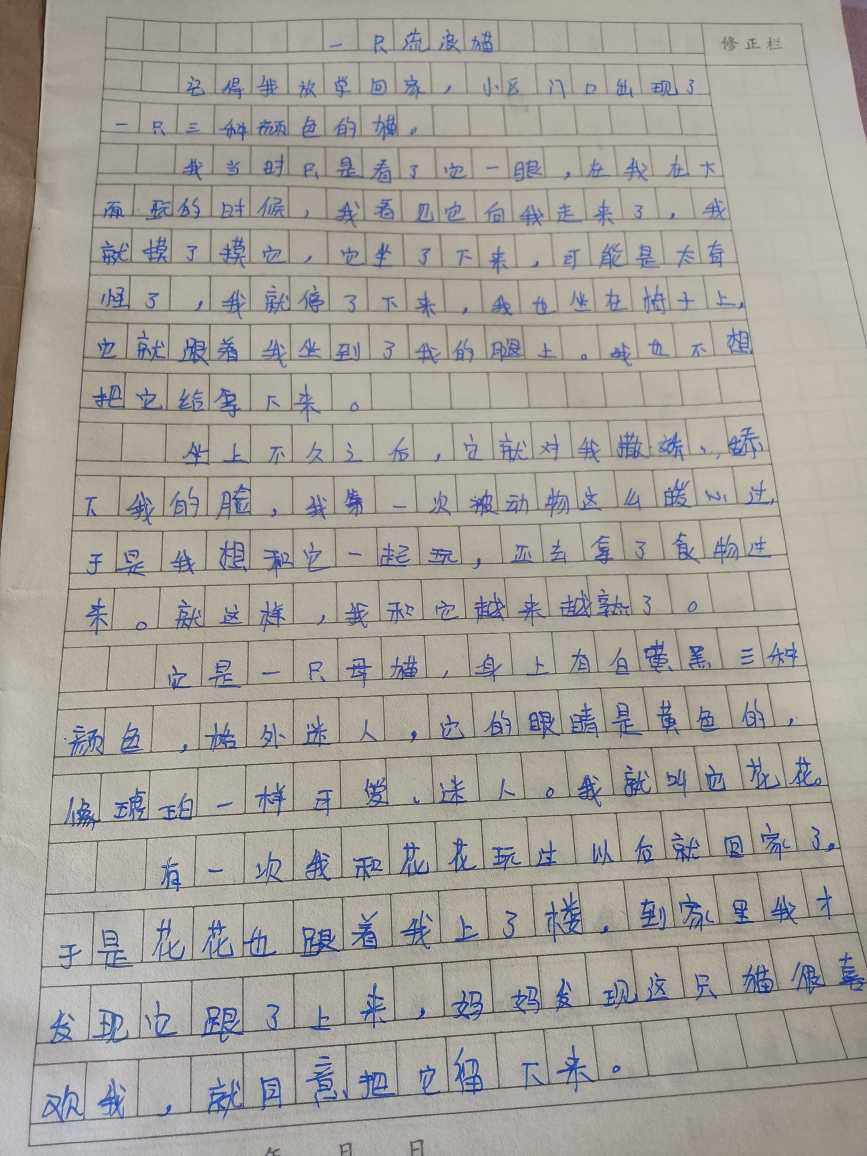 一只流浪猫
修正栏
记得我放学回家，小区门口出现了
一只三种颜色的猫。
我当时只是看了它一眼，在我在大
面玩的时候，我看见它向我走来了，我
就摸了摸它，它坐了下来，可能是太有
怪了，我就停了下来，我也坐在椅子上，
它就跟着我坐到了我的腿上。我也不想
把它给弄下来。
坐上不久之后，它就对我撒娇、
下我的脸，我第一次被动物这么暖心过，
于是我想和它一起玩，还去拿了食物过
来。就这样，我和它越来越熟了。
它是一只母猫，身上有白黄黑三种
颜色，格外迷人，它的眼睛是黄色的，
像琥珀一样可爱、迷人。我就叫它花花。
有一次我和花花玩过以后就回家了。
于是花花也跟着我上了楼，到家里我才
发现它跟了上来，妈妈发现这只猫很喜
欢我，就同意把它留下来。
年 月 日